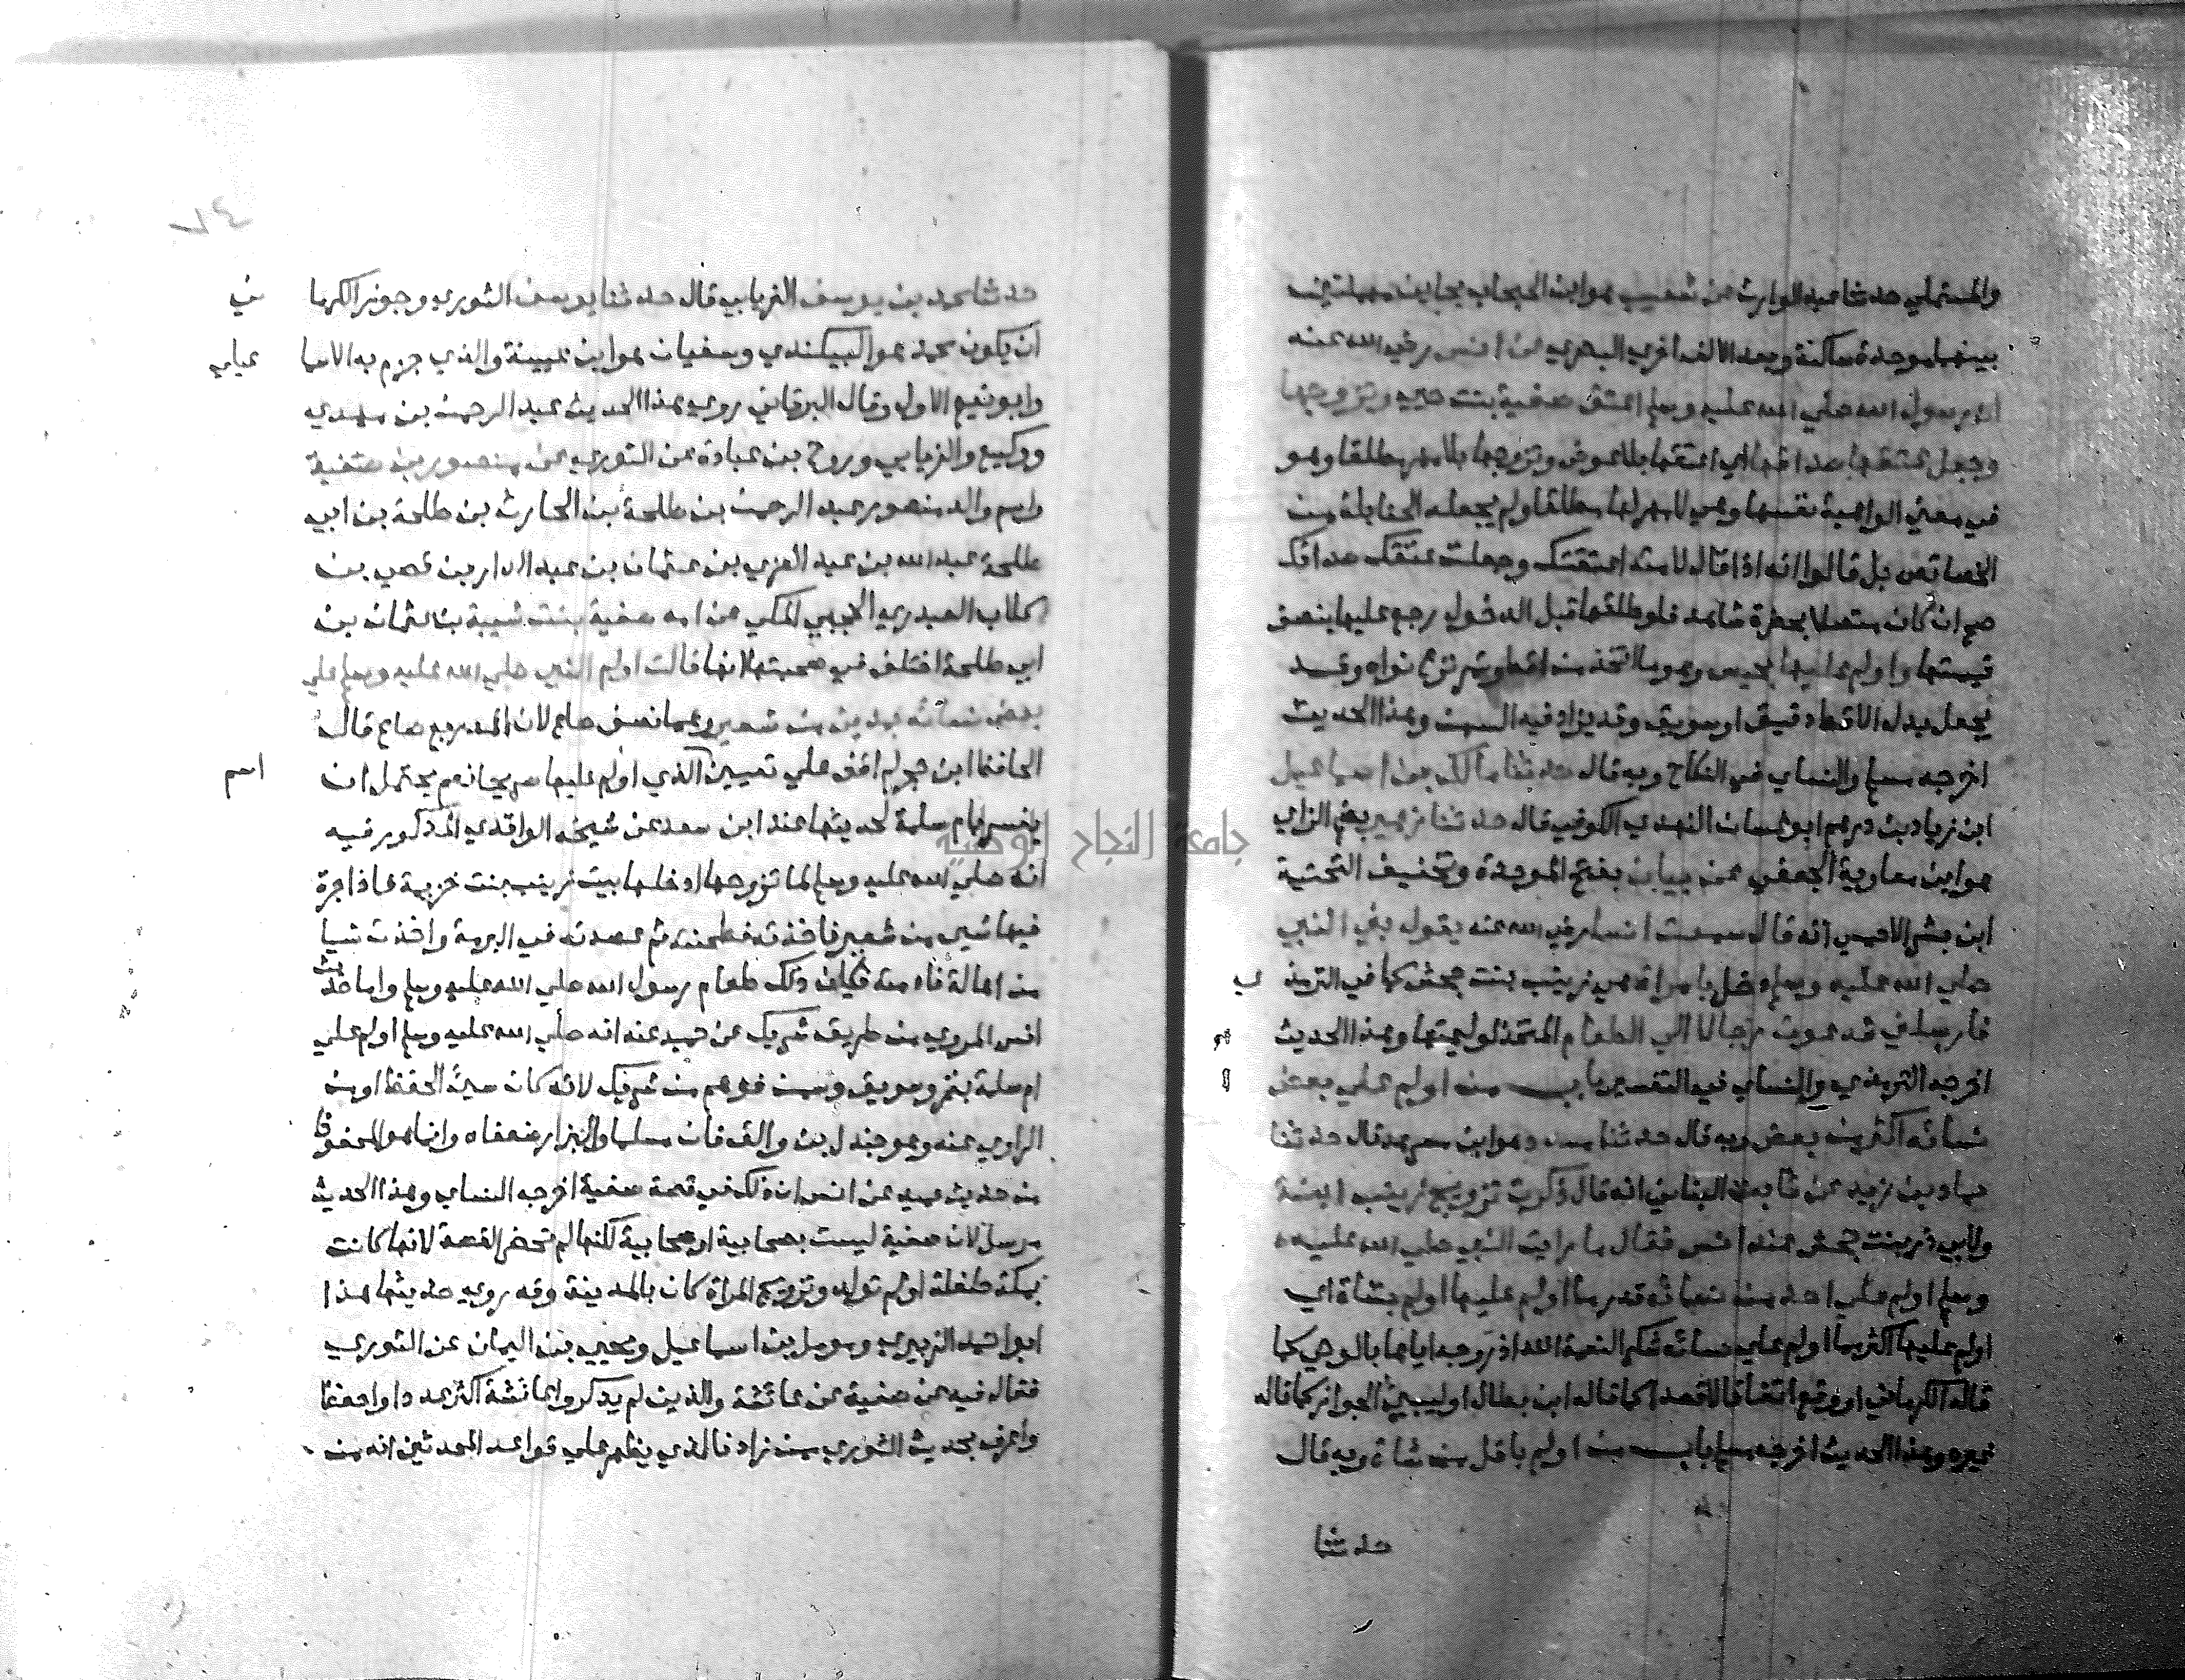 والمستملي حدثنا عبد الوارث عن شعيب هو ابن الحبحاب بحاين مهملتين
بينهما موحدة ساكنة وبعد الالف اخري البصري عن انس رضي الله عنه
ان رسول الله صلي الله عليه وسلم اعتق صفية بنت حيي وتزوجها
وجعل عتقها صداقها اي اعتقها بلا عوض وتزوجها بلا مهر مطلقا وهو
في معني الواهبة نفسها وهي لا مهر لها مطلقا ولم يجعله الحنابلة من
الخصائص بل قالوا انه اذا قال لامته اعتقتك وجعلت عتقك صداقك
صح ان كان متصلا بحضرة شاهد فلو طلقها قبل الدخول رجع عليها بنصف
قيمتها واولم عليها بحيس وهو ما اتخذ من اقط وتمر نزع نواه وقد
يجعل بدل الاقط دقيق او سويق وقد يزاد فيه السمن وهذا الحديث
اخرجه مسلم والنساي في النكاح وبه قال حدثنا مالك بن اسماعيل
ابن زياد بن درهم ابو غسان النهدي الكوفي قال حدثنا زهير بضم الزاي
هو ابن معاوية الجعفي عن بيان بفتح الموحدة وتخفيف التحتية
ابن بشر الاحمسي انه قال سمعت انسا رضي الله عنه يقول بني النبي
صلي الله عليه وسلم دخل بامراة هي زينب بنت جحش كما في الترمذ ي
فارسلني فدعوت رجالا الي الطعام المتخذ لوليمتها وهذا الحديث
اخرجه الترمذي والنساي في التفسير باب من اولم علي بعض
نسائه اكثر من بعض وبه قال حدثنا مسدد هو ابن مسرهد قال حدثنا
حماد بن زيد عن ثابت البناني انه قال ذكرت تزويج زينب ابنة
ولابي ذر بنت جحش عند انس فقال ما رايت النبي صلي الله عليه
وسلم اولم علي احد من نسائه قدر ما اولم عليها اولم بشاة اي
اولم عليها اكثر مما اولم علي نسائه شكر النعمة الله اذ زوجه اياها بالوحي كما
قاله الكرماني او وقع اتفاقا لا قصدا كما قاله ابن بطال او ليبين الجواز كما قاله
غيره وهذا الحديث اخرجه مسلم باب من اولم باقل من شاة وبه قال
حدثنا
٧٤
حدثنا محمد بن يوسف الفريابي قال حدثنا يوسف الثوري وجوز الكرما ني
ان يكون محمد هو البيكندي وسفيان هو ابن عيينة والذي جزم به الاسما عيلي
وابو نعيم الاول وقال البرقاني روي هذا الحديث عبد الرحمن بن مهدي
ووكيع والفريابي وروح بن عبادة عن الثوري عن منصور بن صفية
واسم والد منصور عبد الرحمن بن طلحة بن الحارث بن طلحة بن ابي
طلحة عبد الله بن عبد العزي بن عثمان بن عبد الدار بن قصي بن
كلاب العبدري الحجبي المكي عن امه صفية بنت شيبة بن عثمان بن
ابي طلحة اختلف في صحبتها انها قالت اولم النبي صلي الله عليه وسلم علي
بعض نسائه بمدين من شعير وهما نصف صاع لان المد ربع صاع قال
الحافظ ابن حجر لم اقف علي تعيين الذي اولم عليها صريحا نعم يحتمل ان اسم
يفسر بام سلمة لحديثها عند ابن سعد عن شيخه الواقدي المذكور فيه
انه صلي الله عليه وسلم لما تزوجها ادخلها بيت زينب بنت خزيمة فاذا جرة
فيها شي من شعير فاخذته فطحنته ثم عصدته في البرمة واخذت شيا
من اهالة فادمته فكان ذلك طعام رسول الله صلي الله عليه وسلم واما حديث
انس المروي من طريق شريك عن حميد عنه انه صلي الله عليه وسلم اولم علي
ام سلمة بتمر وسويق وسمن فوهم من شريك لانه كان سيئ الحفظ او من
الراوي عنه وهو جندل بن والق فان مسلما والبزار ضعفاه وانما هو المحفوظ
من حديث حميد عن انس ان ذلك في قصة صفية اخرجه النساي وهذا الحديث
مرسل لان صفية ليست بصحابية او صحابية لكنها لم تحضر القصة لانها كانت
بمكة طفلة او لم تولد وتزويج المراة كان بالمدينة وقد روي حديثها هذا
ابو احمد الزبيري ومومل بن اسماعيل ويحيي بن اليمان عن الثوري
فقال فيه عن صفية عن عائشة والذين لم يذكروا عائشة اكثر عددا واحفظ
واعرف بحديث الثوري ممن زاد فالذي يظهر علي قواعد المحدثين انه من